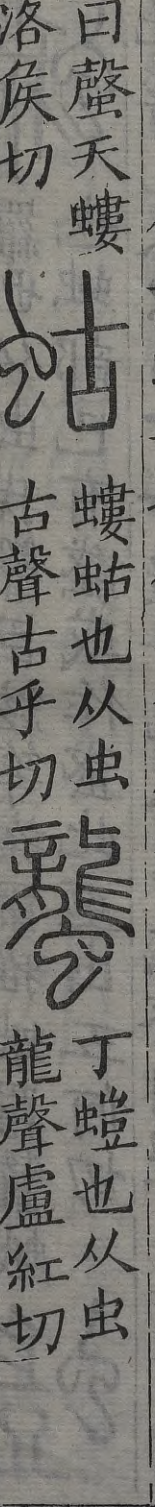 曰蟿天螻
洛矦切
蛄
螻蛄也从虫
古聲古乎切
蠪
丁螘也从虫
龍聲盧紅切